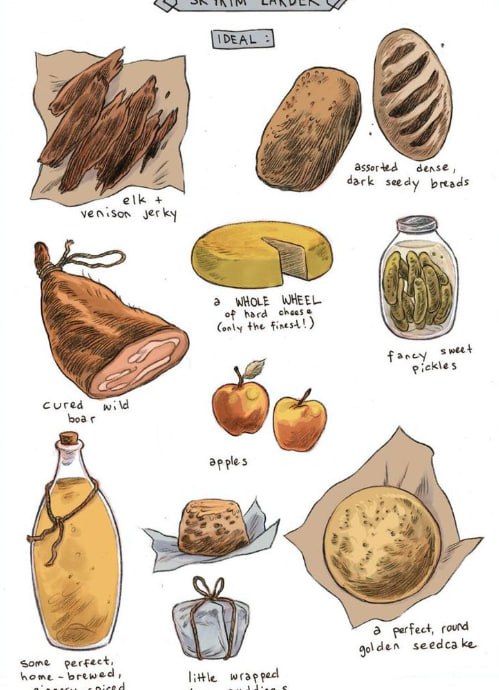 SKYRIM LARDER
IDEAL :
elk +
venison jerky
assorted dense,
dark seedy breads
a WHOLE WHEEL
of hard cheese
(only the finest!)
fancy sweet
pickles
cured wild
boar
apples
a perfect, round
golden seedcake
some perfect,
home-brewed,
spiced
little wrapped